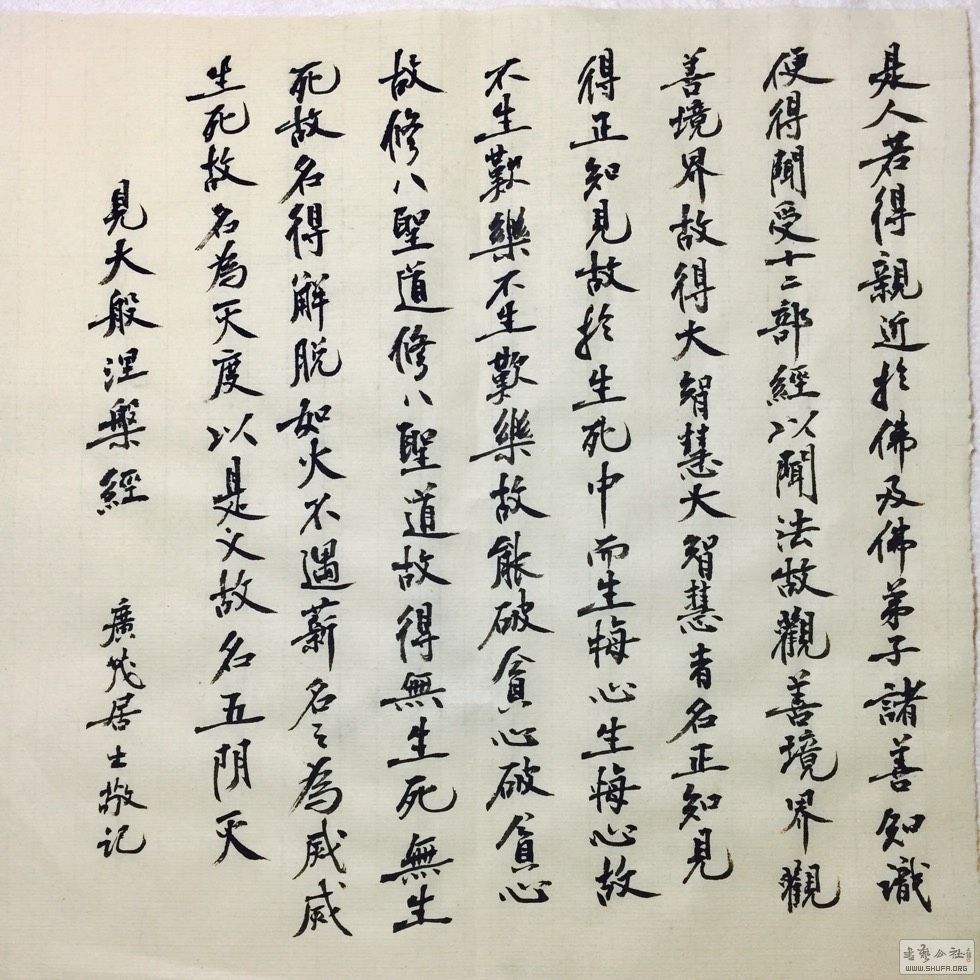 是人若得親近於佛及佛弟子諸善知識
便得聞受十二部經以聞法故觀善境界觀
善境界故得大智慧大智慧者名正知見
得正知見故於生死中而生悔心生悔心故
不生歡樂不生歡樂故能破貪心破貪心
故修八聖道修八聖道故得無生死無生
死故名得解脱如火不遇薪名之為烕烕
生死故名為灭度以是义故名五阴灭
見大般涅槃經 廣茂居士敬记
书艺公社
WWW.SHUFA.ORG